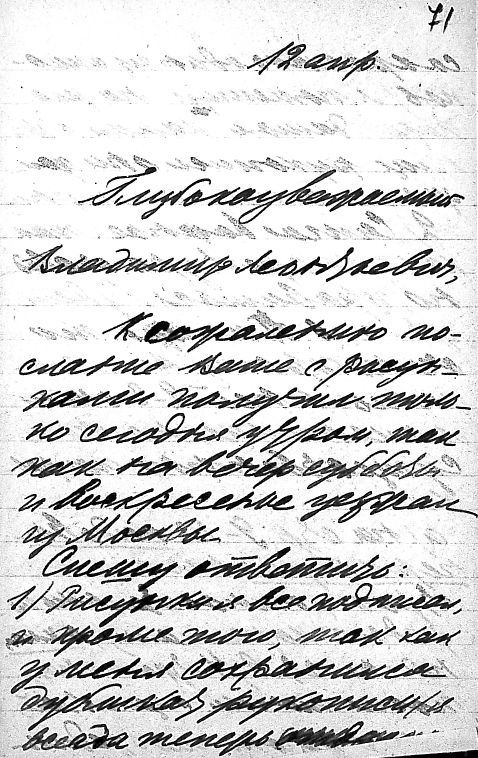 71
12 апр.
Глубокоуважаемый
Владимир Леонтьевич,
К сожалению по-
слание Ваше с рисун-
ками получил толь-
ко сегодня утром, так
как на вечер субботы
и Воскресенье уезжал
из Москвы
Спешу ответить:
1) Рисунки я все подписал,
и кроме того, так как
у меня сохранился
дубликат рукописи (я
всегда теперь